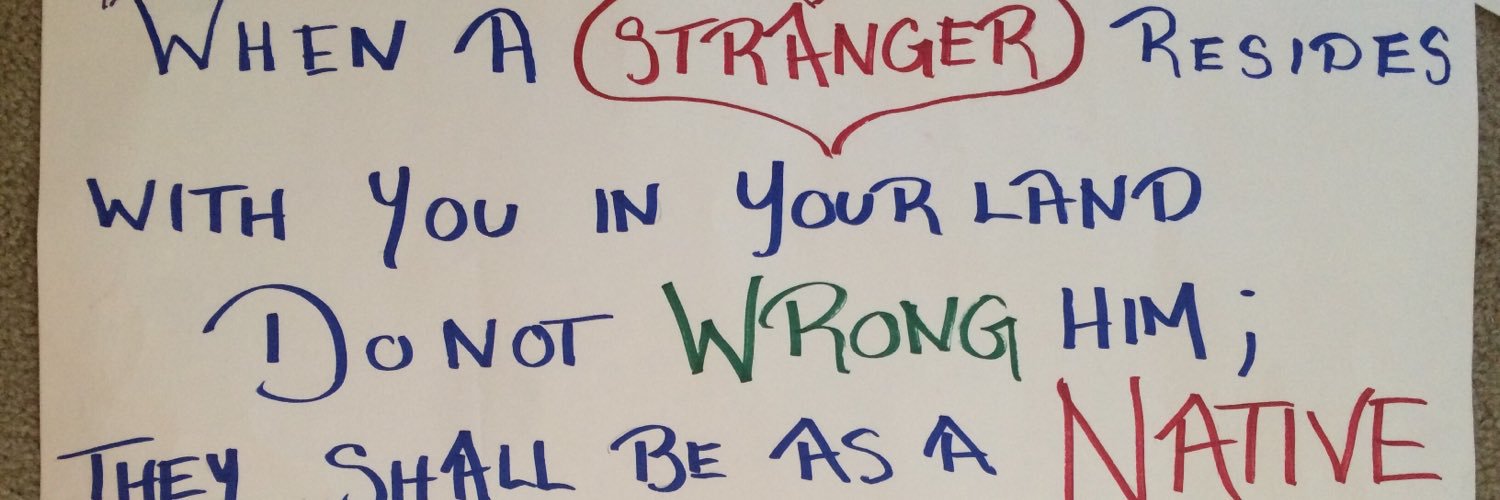 "WHEN A STRANGER RESIDES
WITH YOU IN YOUR LAND
DO NOT WRONG HIM;
THEY SHALL BE AS A NATIVE